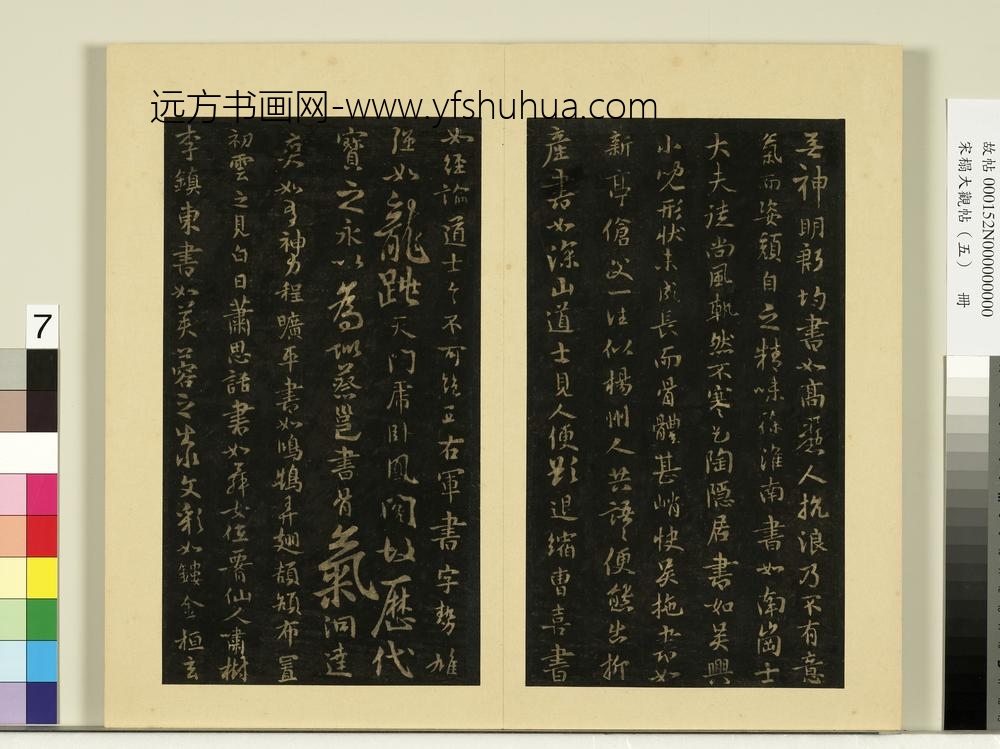 远方书画网-www.yfshuhua.com
故帖 000152N000000000
宋榻大觀帖（五） 冊
7
無神明殷均書如高麗人抗浪乃不有意
氣而姿顏自之精味徐淮南書如南崗士
大夫徒尚風軌然不寒乞陶隱居書如吳興
小兒形狀未成長而骨體甚峭快吳施書如
新亭傖父一往似楊州人共語便態出柳
產書如深山道士見人便欲退縮曹喜書
如經論道士言不可絕王右軍書字勢雄
強如龍跳天門虎臥鳳閣故歷代
寶之永以為訓蔡邕書骨氣洞達
爽爽如有神力程曠平書如鴻鵠弄翅頡頏布置
初雲之見白日蕭思話書如舞女低腰仙人嘯樹
李鎮東書如芙蓉之出水文彩如鏤金桓玄